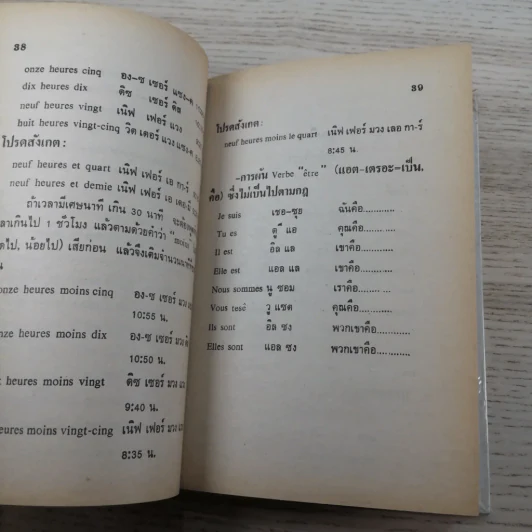 38
onze heures cinq อง-ซ เซอร์ แซง-ค
dix heures dix ดิซ เซอร์ ดิส
neuf heures vingt เนิฟ เฟอร์ แวง
huit heures vingt-cinq วิต เตอร์ แวง แซง-ค
โปรดสังเกต :
neuf heures et quart เนิฟ เฟอร์ เอ กา-ร์
neuf heures et demie เนิฟ เฟอร์ เอ
ถ้าเวลามีเศษนาที เกิน 30 นาที
ลาเกินไป 1 ชั่วโมง แล้วตามด้วยคำว่า "moins"
ดไป, น้อยไป) เสียก่อน แล้วจึงเติมจำนวนนาที
น
onze heures moins cinq อง-ซ เซอร์ มวง
10:55 น.
nze heures moins dix อง-ซ เซอร์ มวง
10:50 น.
heures moins vingt ดิซ เซอร์ มวง
9:40 น.
eures moins vingt-cinq เนิฟ เฟอร์ มวง
8:35 น.
39
โปรดสังเกต :
neuf heures moins le quart เนิฟ เฟอร์ มวง เลอ กา-ร์
8:45 น.
-การผัน Verbe "être" (แอต-เตรอะ=เป็น,
คือ) ซึ่งไม่เป็นไปตามกฎ
Je suis เชอ-ซุย ฉันคือ............
Tu es ตู แอ คุณคือ............
Il est อิล แล เขาคือ............
Elle est แอล แล เขาคือ............
Nous sommes นู ซอม เราคือ............
Vous tesê วู แซต คุณคือ............
Ils sont อิล ซง พวกเขาคือ............
Elles sont แอล ซง พวกเขาคือ............